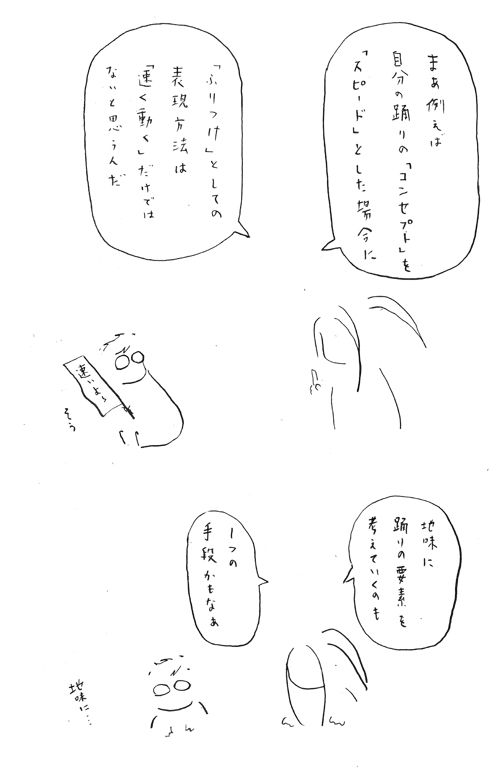 まあ例えば
自分の踊りの「コンセプト」を
「スピード」とした場合に
「ふりつけ」としての
表現方法は
「速く動く」だけでは
ないと思うんだ
速いよ〜
そう
地味に
踊りの要素を
考えていくのも
1つの
手段かもなぁ
地味に…